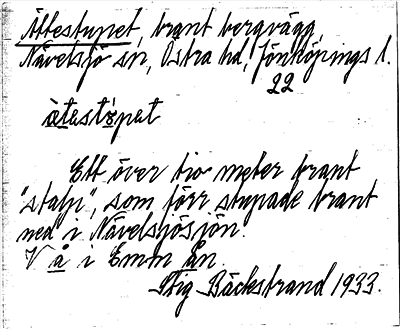 Ättestupet, brant bergvägg,
Nävelsjö sn, Östra hd, Jönköpings l.
22
ä̀tests̀pet
Ett över tio meter brant
"stalp", som förr stupade brant
ned i Nävelsjösjön.
V å i Emm ån.
Stig Bäckstrand 1933.